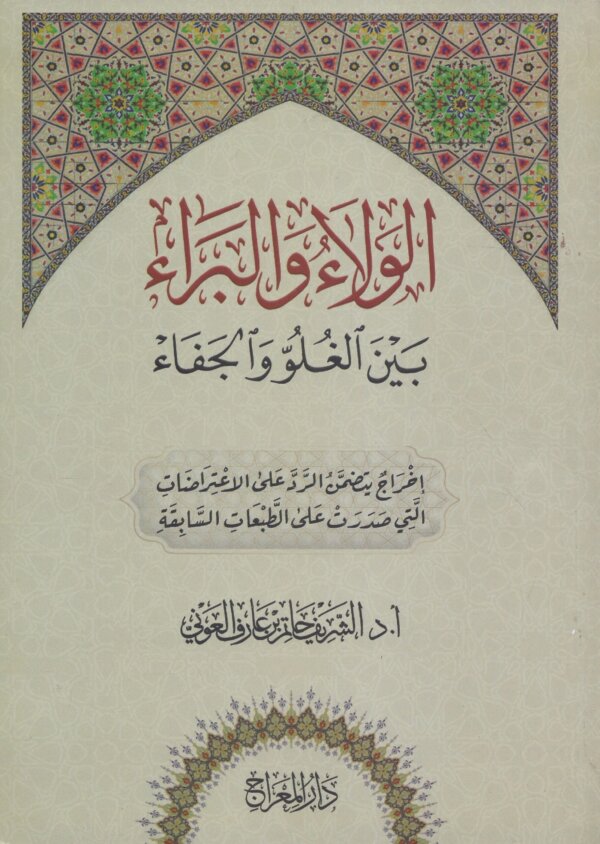 الوَلَاءُ وَالبَرَاء
بَيْنَ ٱلغُلُوِّ وَٱلجَفَاءْ
إِخْرَاجٌ يَتَضَمَّنُ الرَّدَّ عَلىٰ الاعْتِرَاضَاتِ
الَّتِي صَدَرَتْ عَلىٰ الطَّبْعَاتِ السَّابِقَةِ
أ.د. الشَّرِيفْ حَاتِم بْنْ عَارِفْ العَوْنِي
دَارُ المِعْرَاجِ